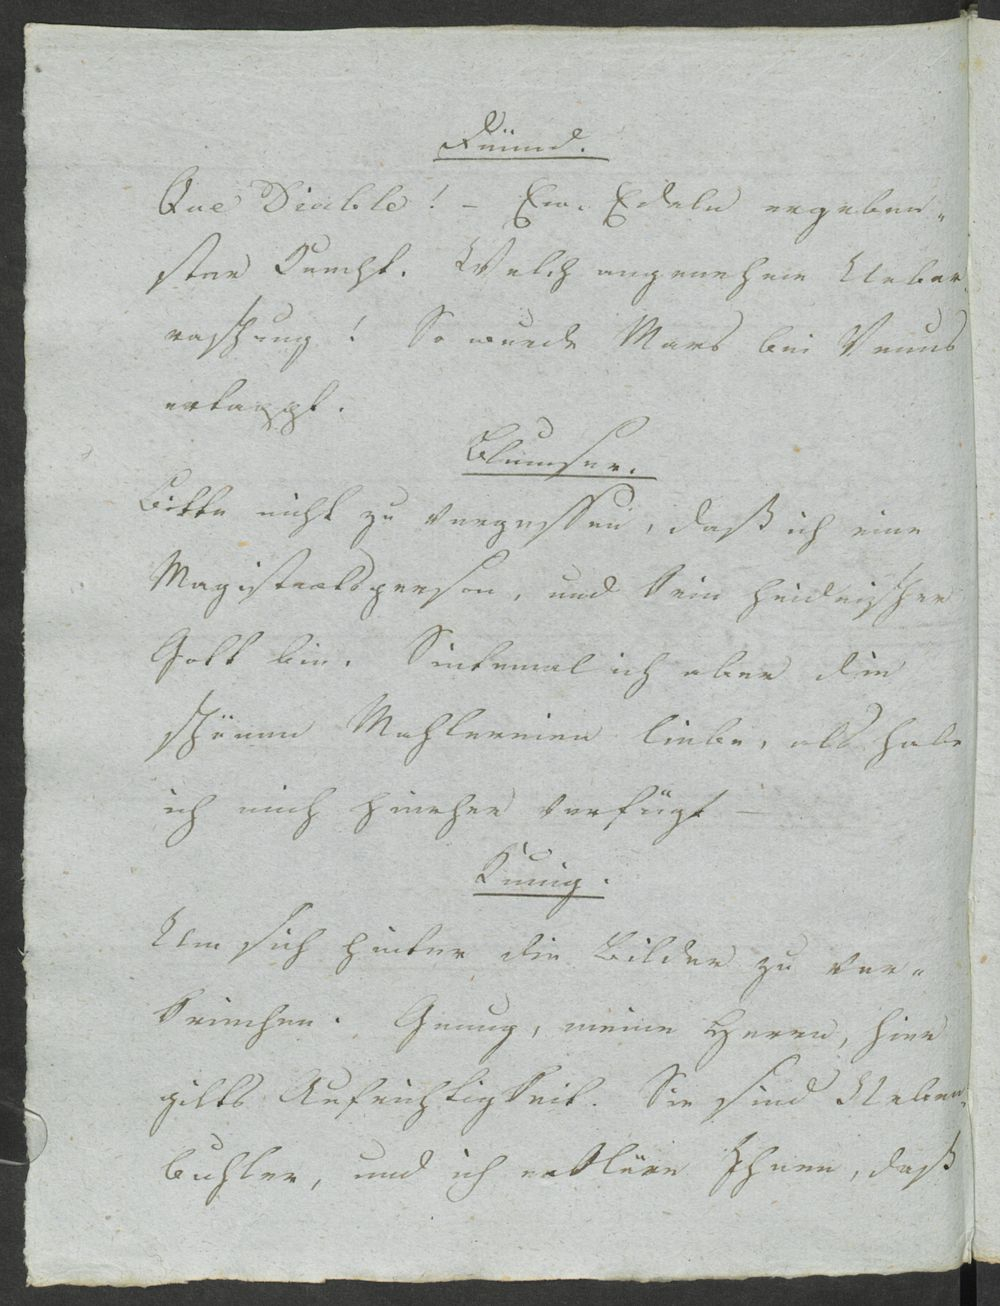 Freund.
Que Diable! – Ew. Edeln ergeben„
ster Knecht. Welch angenehme Ueber
raschung! So wurde Mars bei Venus
ertappt.
Blumser.
Bitte nicht zu vergessen, daß ich eine
Magistratsperson, und kein heidnischer
Gott bin. Sintemal ich aber die
schönen Mahlereien liebe, als habe
ich mich hierher verfügt –
König.
Um sich hinter die Bilder zu ver„
kriechen. Genug, meine Herrn, hier
gilts Aufrichtigkeit. Sie sind Neben
buhler, und ich erkläre Ihnen, daß